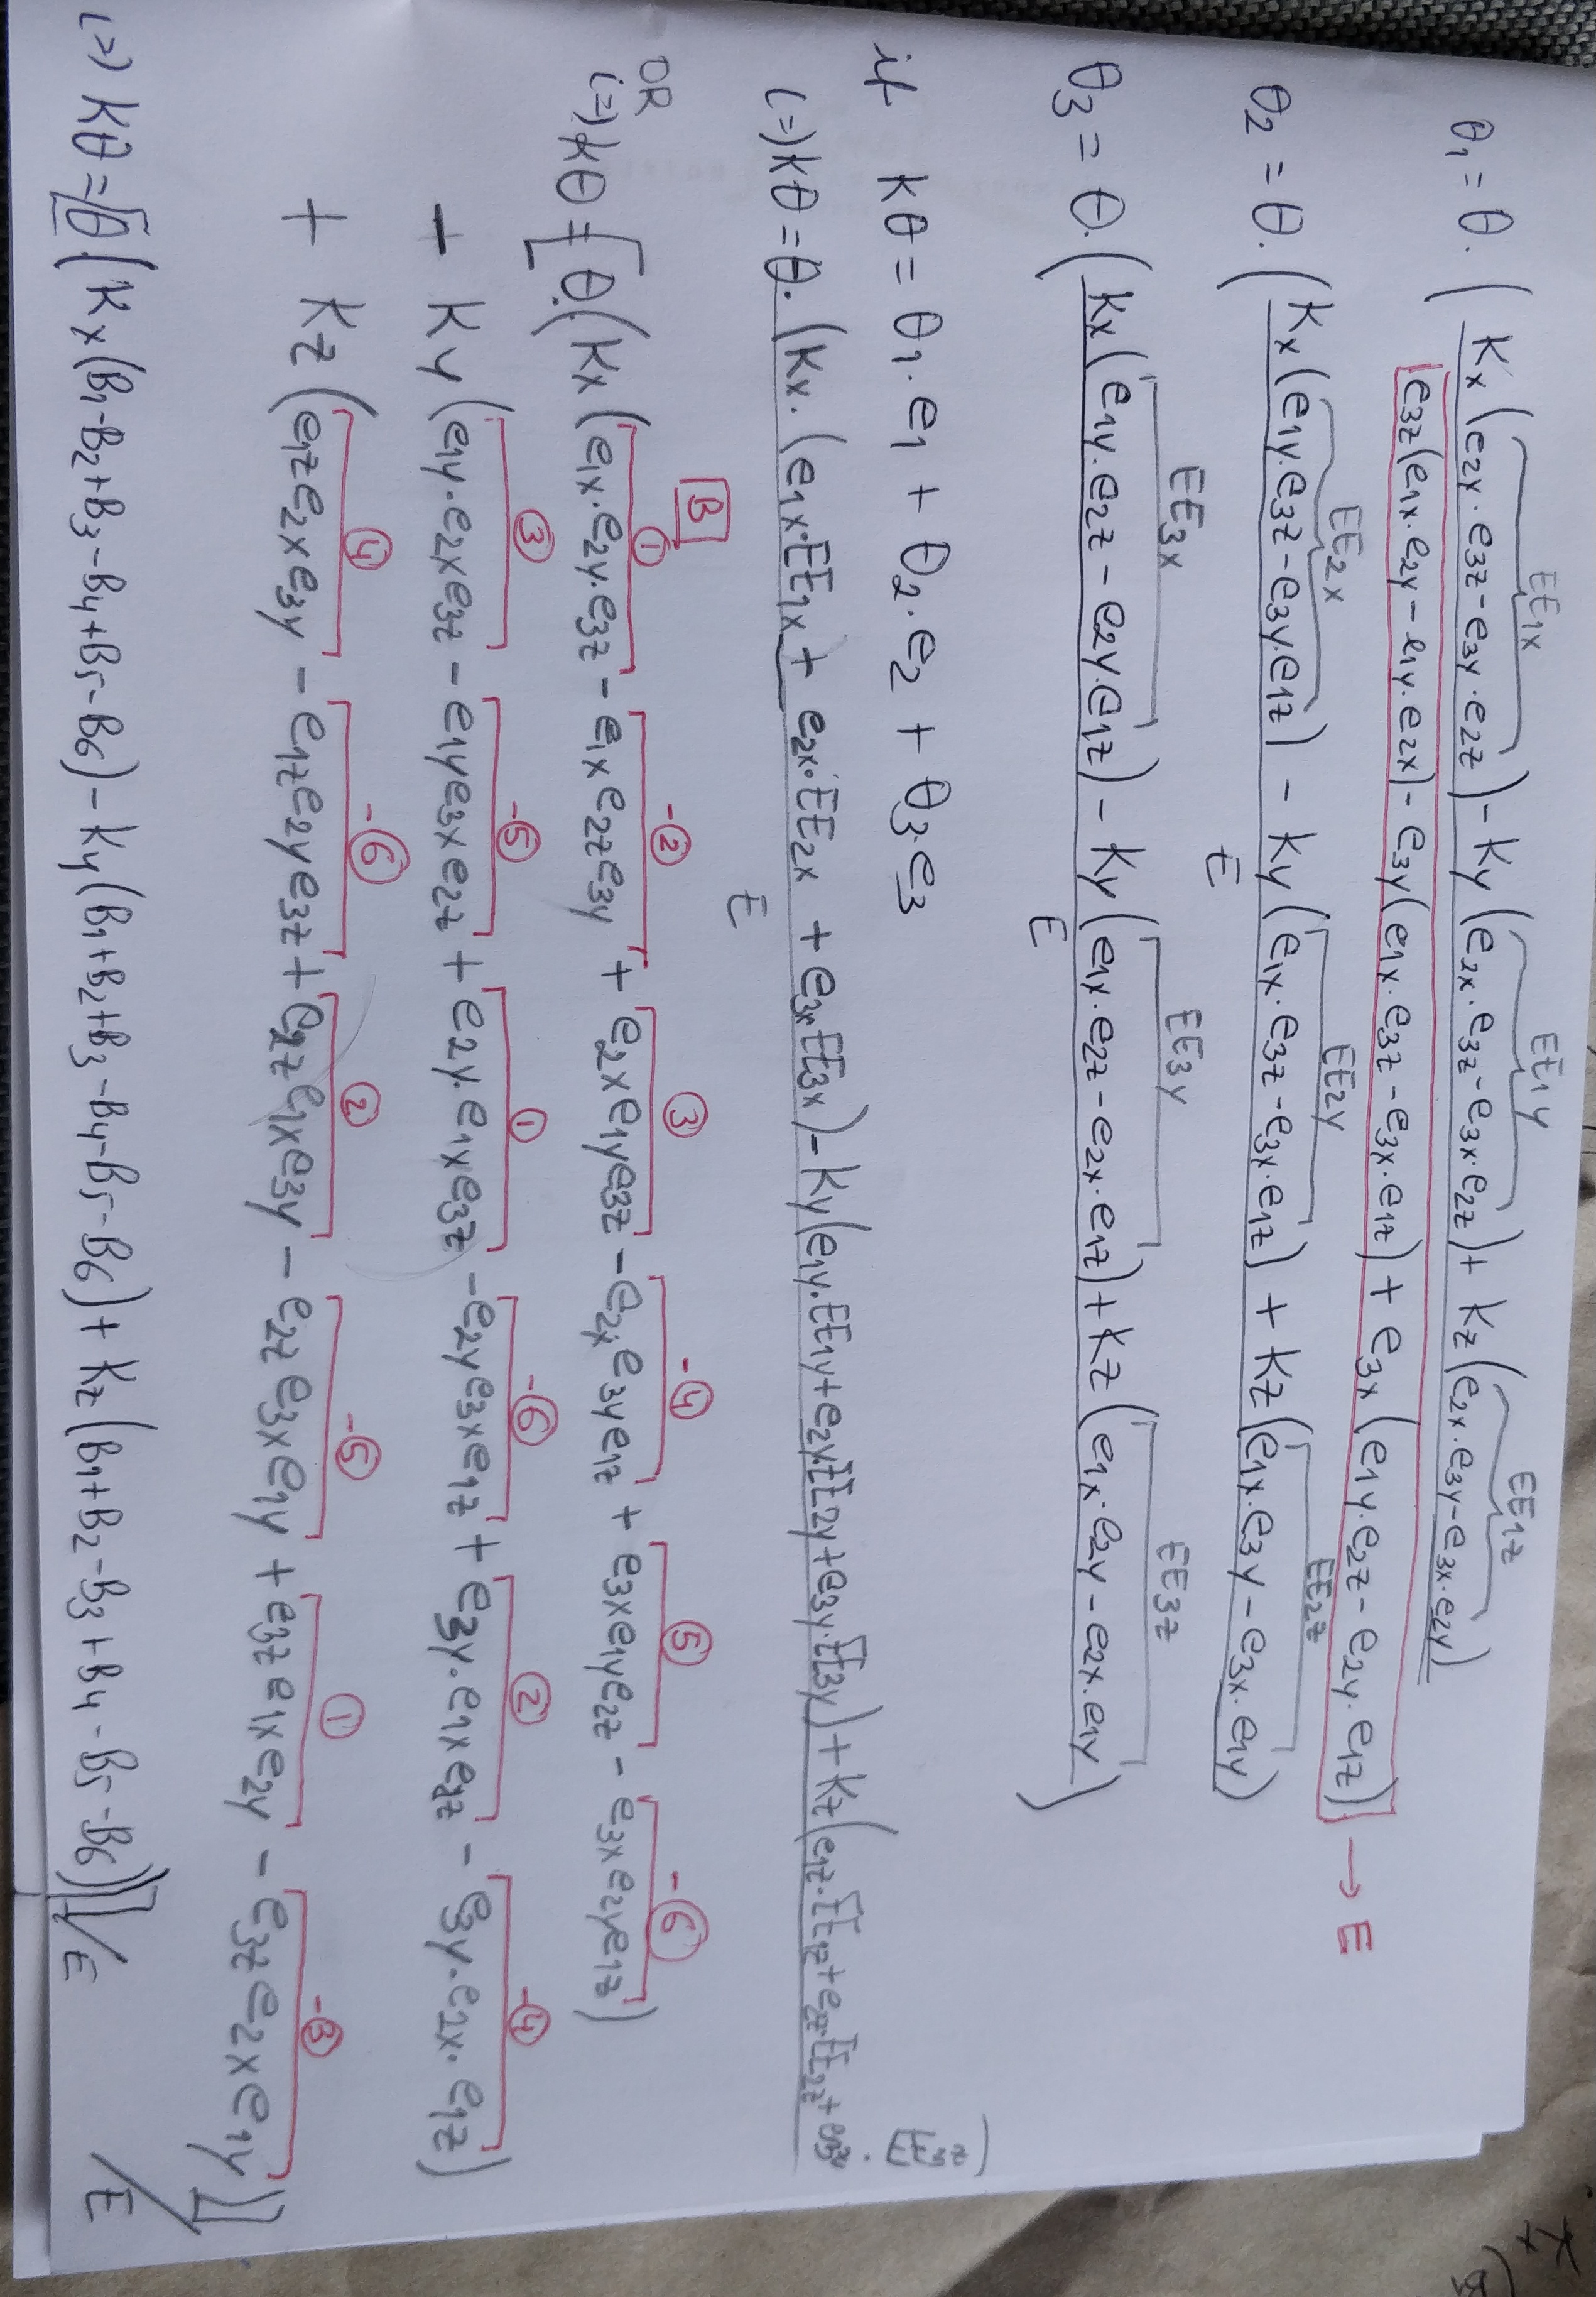 EE1x EE1y EE1z
θ1 = θ. (Kx (e2y.e3z-e3y.e2z) - Ky (e2x.e3z-e3x.e2z) + Kz (e2x.e3y-e3x.e2y)
e3z(e1x.e2y - e1y.e2x) - e3y(e1x.e3z - e3x.e1z) + e3x (e1y.e2z - e2y.e1z) → E
EE2x EE2y EE2z
θ2 = θ. (Kx (e1y.e3z-e3y.e1z) - Ky (e1x.e3z-e3x.e1z) + Kz (e1x.e3y - e3x.e1y)
E
EE3x EE3y EE3z
θ3 = θ. (Kx (e1y.e2z - e2y.e1z) - Ky (e1x.e2z - e2x.e1z) + Kz (e1x.e2y - e2x.e1y)
E
if Kθ = θ1.e1 + θ2.e2 + θ3.e3
(=) Kθ = θ. (Kx. (e1x.EE1x + e2x.EE2x + e3x.EE3x) - Ky (e1y.EE1y + e2y.EE2y + e3y.EE3y) + Kz (e1z.EE1z + e2z.EE2z + e3z.EE3z)
E
B
1 -2 3 -4 5 -6
OR
(=) Kθ = [θ.(Kx (e1x.e2y.e3z - e1x e2z e3y + e2x e1y e3z - e2x e3y e1z + e3x e1y e2z - e3x e2y e1z)
3 -5 1 -6 2 -4
- Ky (e1y.e2x e3z - e1y e3x e2z + e2y.e1x e3z - e2y e3x e1z + e3y.e1x e2z - e3y.e2x.e1z)
4 -6 2 -5 1 -3
+ Kz (e1z e2x e3y - e1z e2y e3z + e2z e1x e3y - e2z e3x e1y + e3z e1x e2y - e3z e2x e1y)]
/E
(=) Kθ = [θ (Kx (B1-B2+B3-B4+B5-B6) - Ky (B1+B2+B3-B4-B5-B6) + Kz (B1+B2-B3+B4-B5-B6))]/E